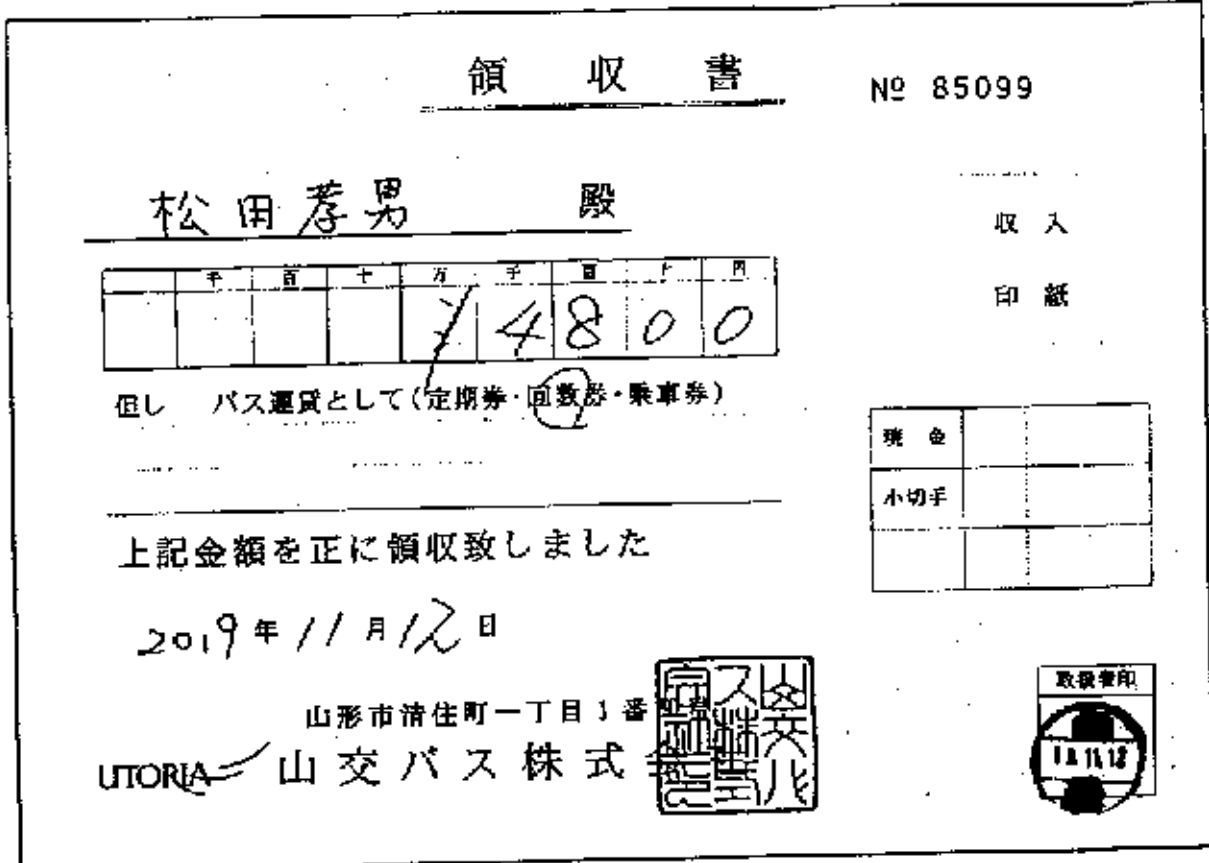 領収書
№ 85099
松田孝男 殿
収入
印紙
千 百 十 万 千 百 十 円
¥4800
但し バス運賃として(定期券・回数券・乗車券)
現金
小切手
上記金額を正に領収致しました
2019年11月12日
山形市清住町一丁目1番
UTORIA 山交バス株式会
山交バス株式会社
取扱者印
11.12